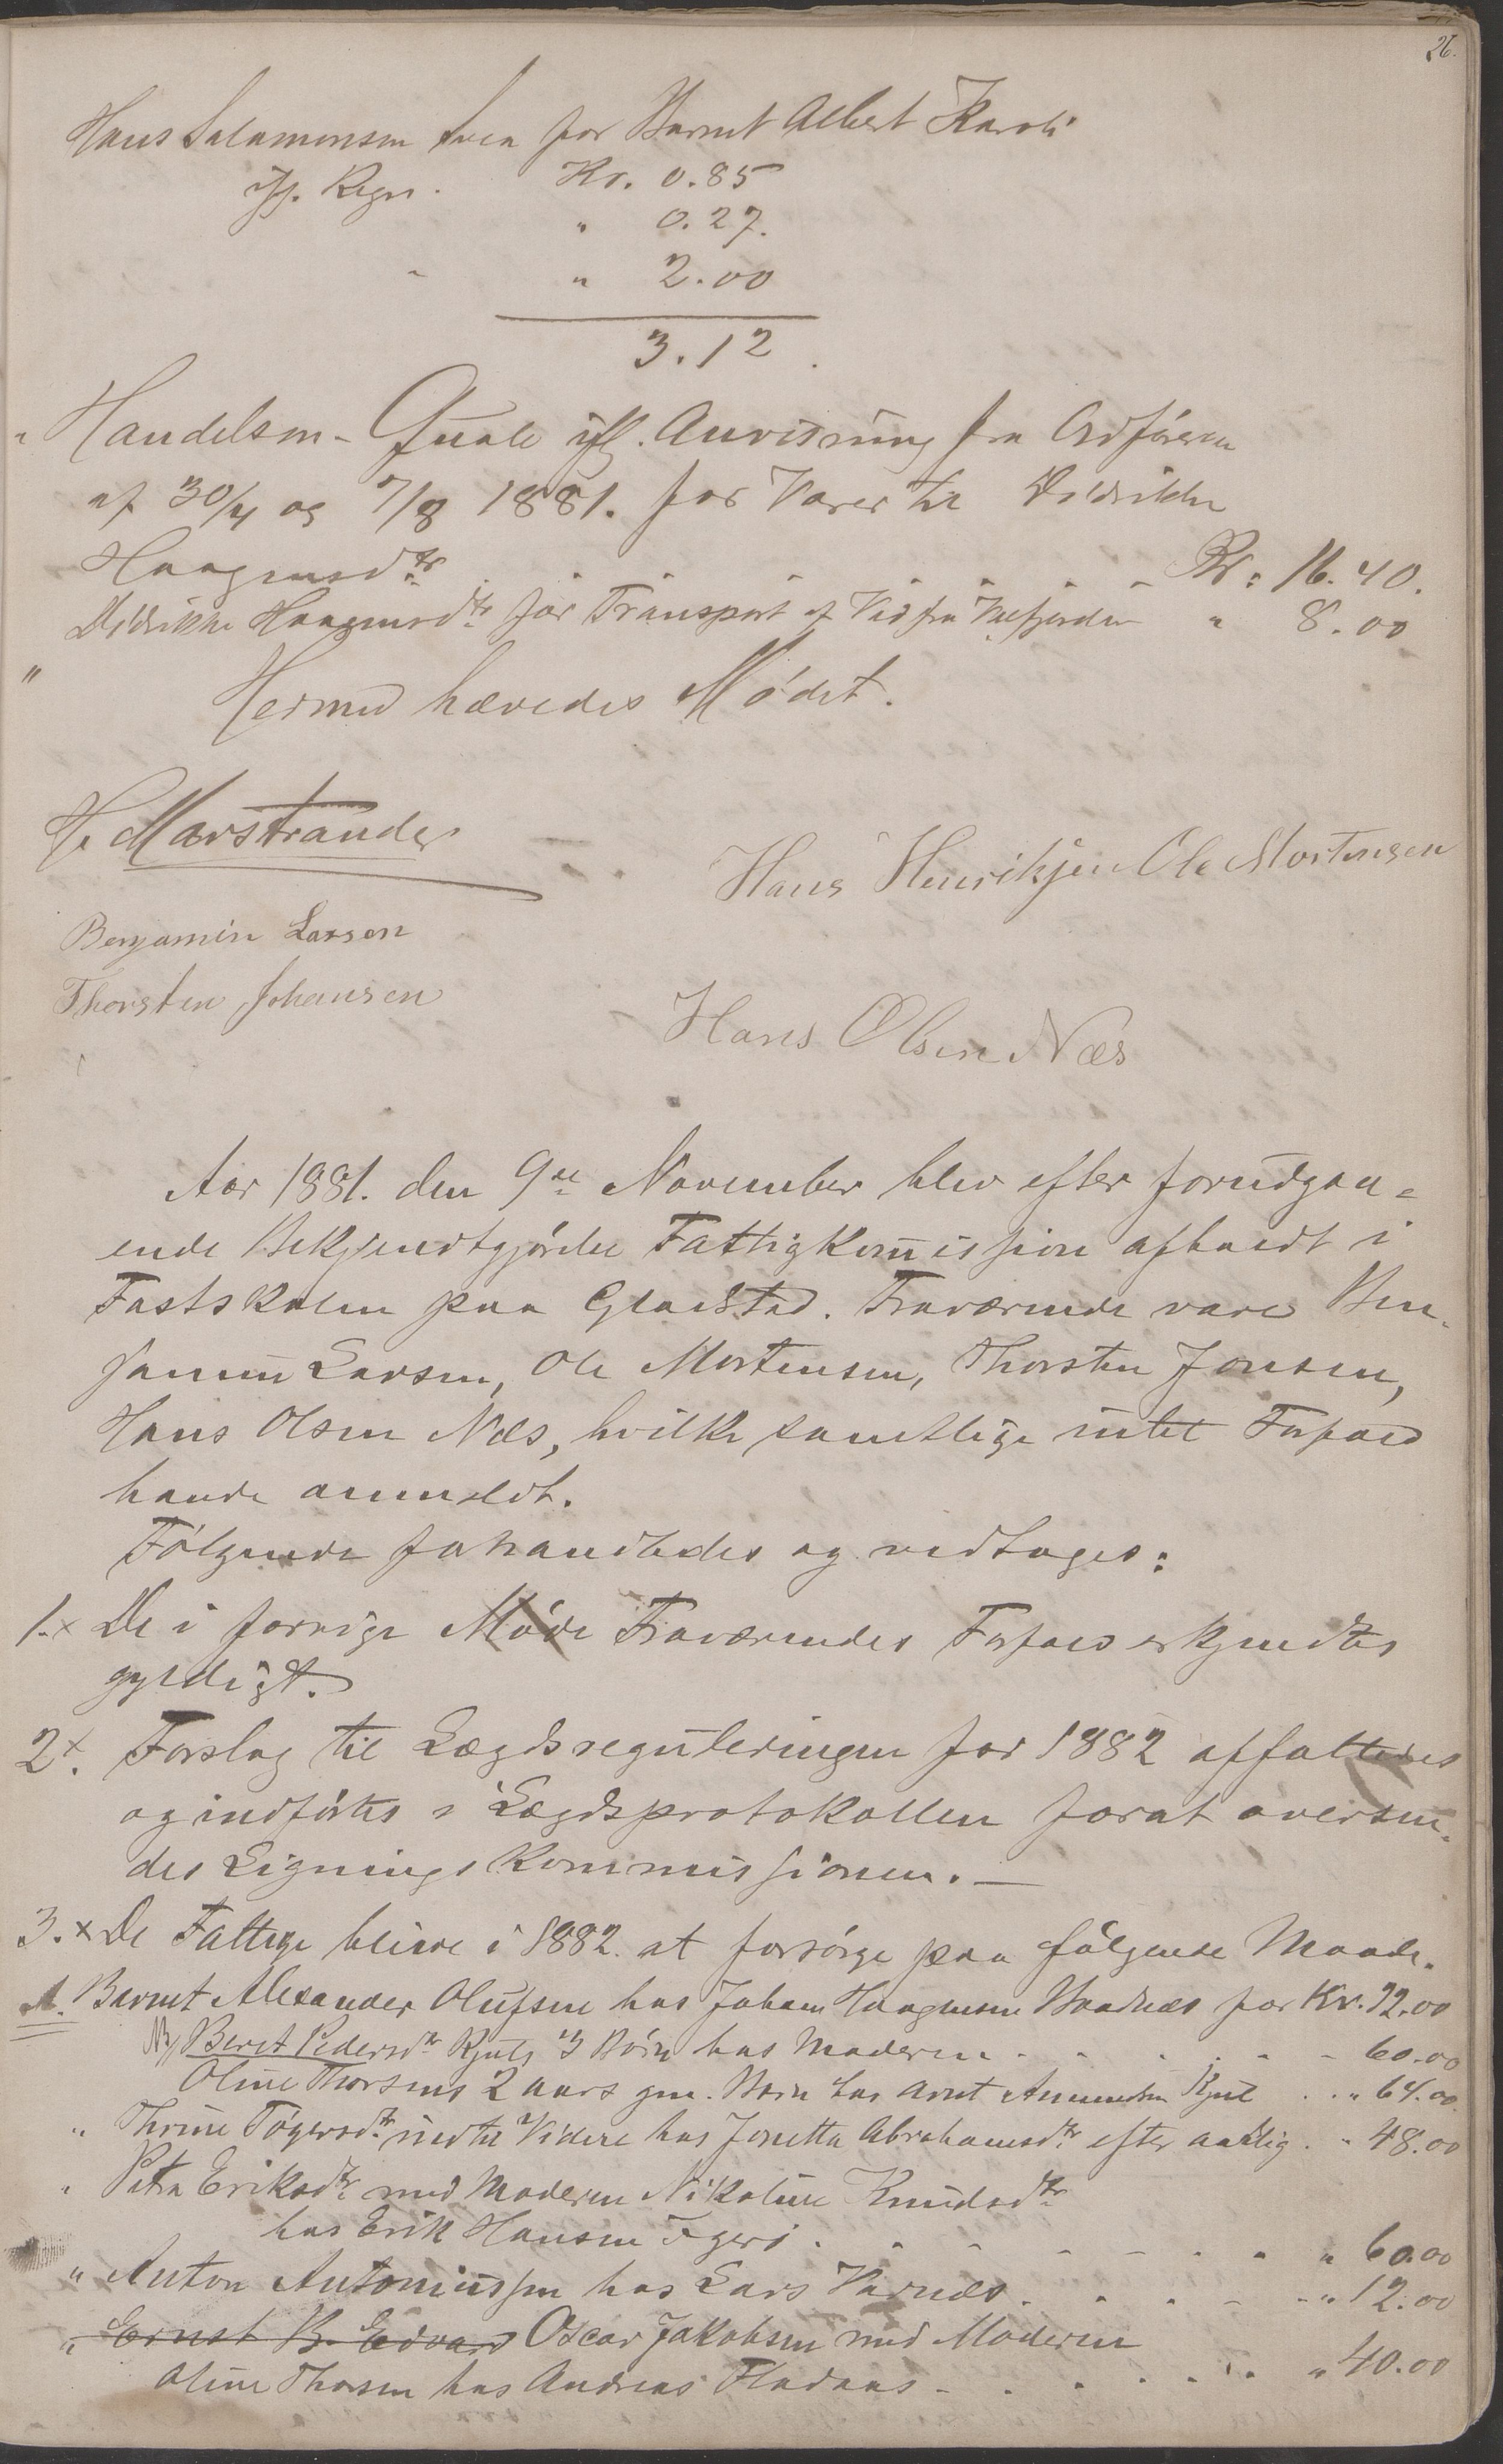 26.
Hans Salamonsen for Barnet Albert Karoli
ifl. Regn. Kr. 0.85
" 0.27.
" 2.00
3.12
" Handelsm. Quale ifl. Anvisning fra Ordføreren
af 30/4 og 7/8 1881. for Varer til Didrikke
Haagensdtr. Kr: 16.40.
Didrikke Haagensdtr for Transport af Ved fra Velfjorden " 8.00
"
Hermed hævedes Mødet.
H. Marstrander
Hans Henriksen Ole Mortensen
Benjamin Larsen
Thorsten Johansen
Hans Olsen Næs
Aar 1881. den 9de November blev efter forudgaa-
ende Bekjendtgjørelse Fattigkommission afholdt i
Fastskolen paa Gladstad. Fraværende vare Ben-
jamin Larsen, Ole Mortensen, Thorsten Jonsen,
Hans Olsen Næs, hvilke samtlige intet Forfald
havde anmeldt.
Følgende forhandledes og vedtoges:
1.x De i forrige Møde Fraværendes Forfald erkjendtes
gyldigt.
2x. Forslag til Lægdsreguleringen for 1882 affattedes
og indførtes i Lægdsprotokollen forat oversen-
des Ligningskommissionen. —
3.x De Fattige blive i 1882 at forsørge paa følgende Maade.
A. Barnet Alexander Olufsen hos Johan Haagensen for Kr. 72.00
Beret Pedersdtr Kjuls 3 Børn hos Moderen 60.00
Oline Thorsens 2 aars gm. Barn hos Arnt Amundsen Kjul " 64.00
" Thrine Tøgersdtr indtil Videre hos Jonetta Abrahamsdtr efter aarlig " 48.00
" Petra Eriksdtr med Moderen Nikoline Knudsdtr
hos Erik Hansen " 60.00
" Anton Antoniussen hos Lars Værnes " 12.00
" Ernst B. Edvard Oscar Jakobsen med Moderen
Oline Thorsen hos Andreas Fladaas " 40.00